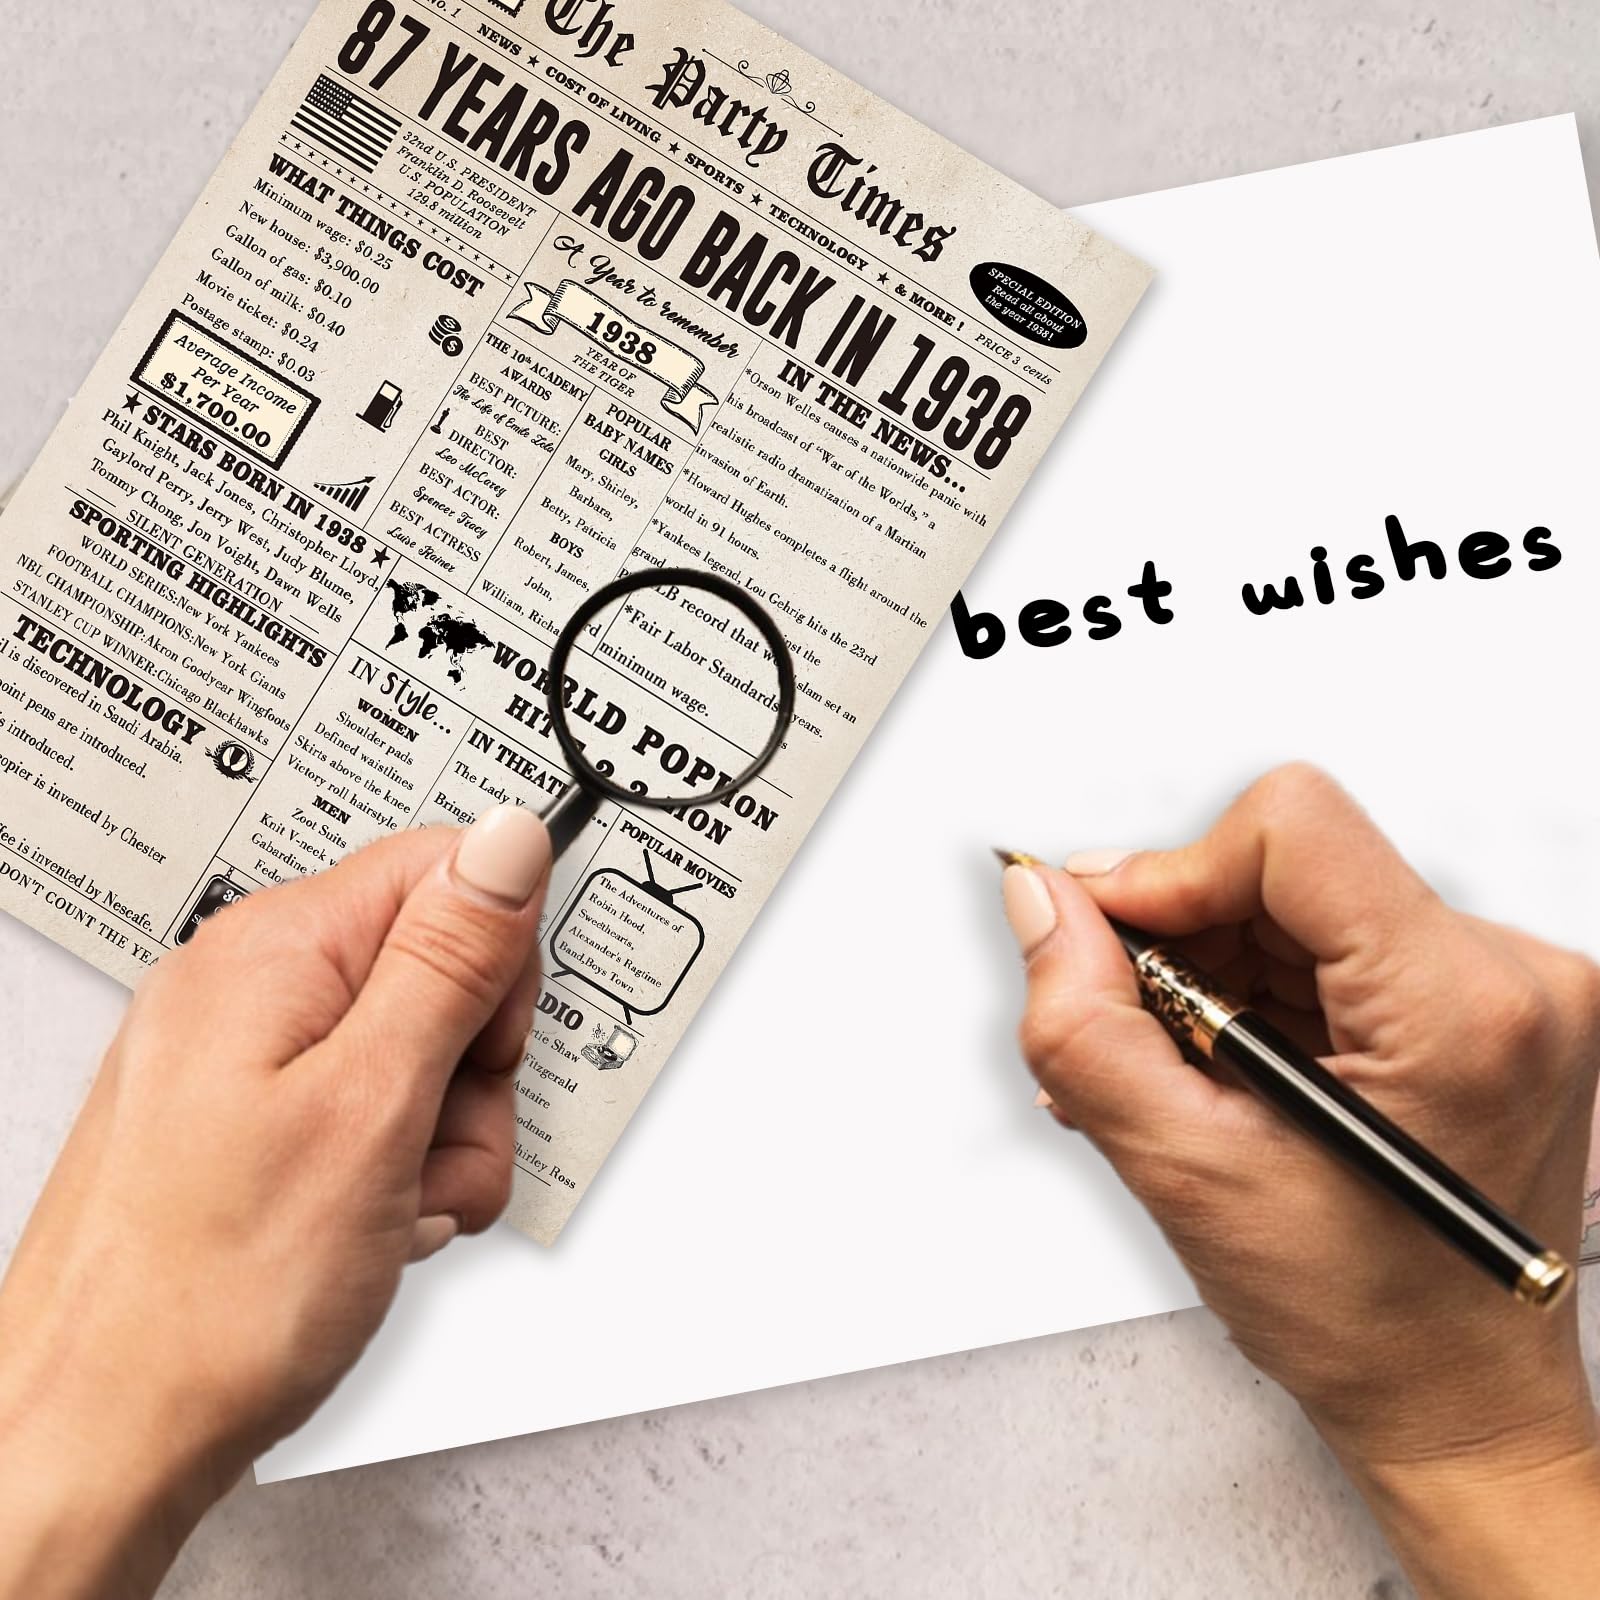 No. 1
The Party Times
NEWS ★ COST OF LIVING ★ SPORTS ★ TECHNOLOGY ★ & MORE! PRICE 3 cents
87 YEARS AGO BACK IN 1938
SPECIAL EDITION
Read all about
the year 1938!
32nd U.S. PRESIDENT
Franklin D. Roosevelt
U.S. POPULATION
129.8 million
WHAT THINGS COST
Minimum wage: $0.25
New house: $3,900.00
Gallon of gas: $0.10
Gallon of milk: $0.40
Movie ticket: $0.24
Postage stamp: $0.03
Average Income
Per Year
$1,700.00
★ STARS BORN IN 1938 ★
Phil Knight, Jack Jones, Christopher Lloyd,
Gaylord Perry, Jerry West, Judy Blume,
Tommy Chong, Jon Voight, Dawn Wells
SILENT GENERATION
SPORTING HIGHLIGHTS
WORLD SERIES:New York Yankees
FOOTBALL CHAMPIONS:New York Giants
NBL CHAMPIONSHIP:Akron Goodyear Wingfoots
STANLEY CUP WINNER:Chicago Blackhawks
TECHNOLOGY
il is discovered in Saudi Arabia.
point pens are introduced.
is introduced.
copier is invented by Chester
ffee is invented by Nescafe.
DON'T COUNT THE YEA
A Year to remember
1938
YEAR OF
THE TIGER
THE 10th ACADEMY
AWARDS
BEST PICTURE:
The Life of Emile Zola
BEST
DIRECTOR:
Leo McCarey
BEST ACTOR:
Spencer Tracy
BEST ACTRESS
Luise Rainer
POPULAR
BABY NAMES
GIRLS
Mary, Shirley,
Barbara,
Betty, Patricia
BOYS
Robert, James,
John,
William, Richard
IN THE NEWS...
*Orson Welles causes a nationwide panic with
his broadcast of "War of the Worlds," a
realistic radio dramatization of a Martian
invasion of Earth.
*Howard Hughes completes a flight around the
world in 91 hours.
*Yankees legend, Lou Gehrig hits the 23rd
grand
LB record that
*Fair Labor Standards
minimum wage.
inst the
slam set an
years.
WORLD POP ION
HIT 2.2 ION
IN Style...
WOMEN
Shoulder pads
Defined waistlines
Skirts above the knee
Victory roll hairstyle
MEN
Zoot Suits
Knit V-neck
Gabardine
Fedo
IN THEAT ...
The Lady
Bringin
30
POPULAR MOVIES
The Adventures of
Robin Hood,
Sweethearts,
Alexander's Ragtime
Band,Boys Town
ADIO
rtie Shaw
Fitzgerald
Astaire
oodman
Shirley Ross
best wishes